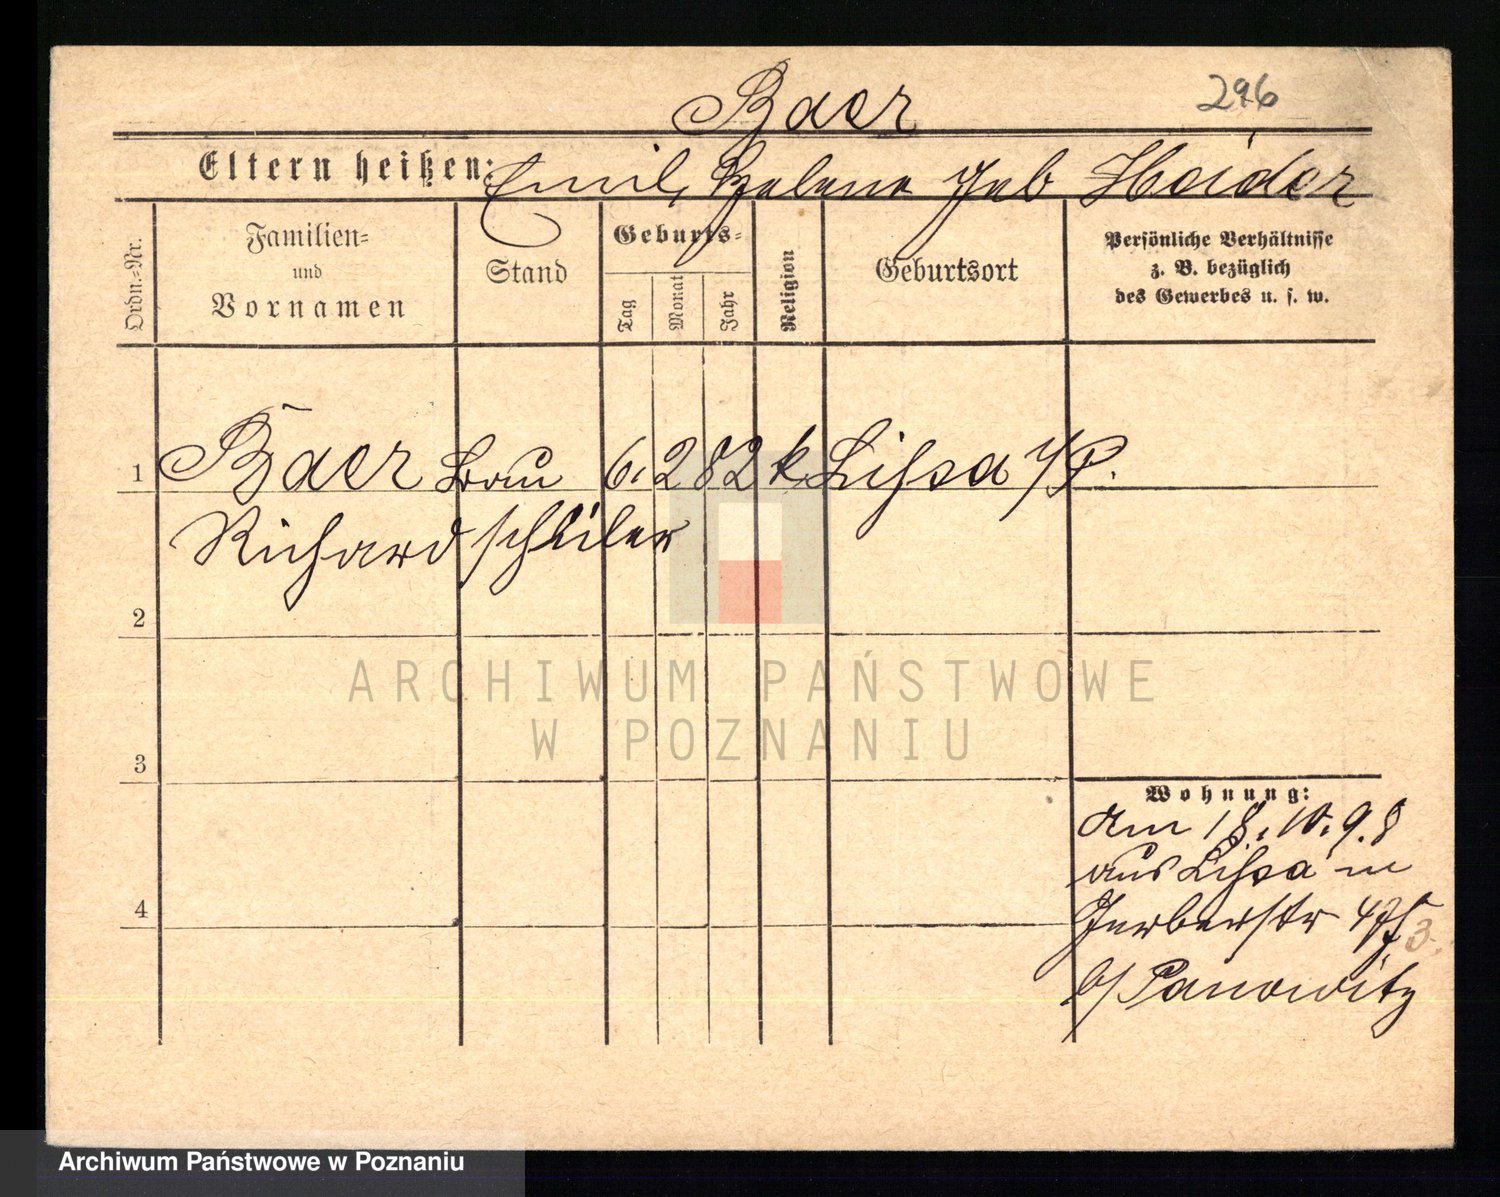 Baer 296
Eltern heißen: Emil, Helene geb Heider
Ordn.=Nr.
Familien=
und
Vornamen
Stand
Geburts=
Tag
Monat
Jahr
Religion
Geburtsort
Persönliche Verhältnisse
z. B. bezüglich
des Gewerbes u. s. w.
1 Baer Bau 6. 2 82 k. Lissa i/P.
Richard schüler
2
3
4
Wohnung:
Am 18. 10. 98
aus Lissa in
Gerberstr
b/ Panowitz
ARCHIWUM PAŃSTWOWE
W POZNANIU
Archiwum Państwowe w Poznaniu